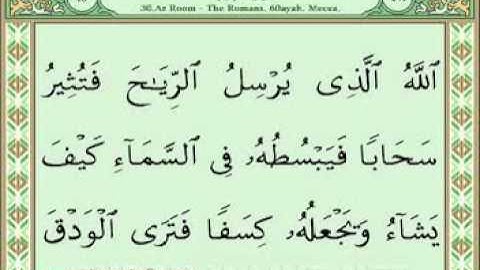 30.Ar Room - The Romans. 60ayah. Mecca.
ٱللَّهُ ٱلَّذِى يُرْسِلُ ٱلرِّيَـٰحَ فَتُثِيرُ
سَحَابًا فَيَبْسُطُهُۥ فِى ٱلسَّمَآءِ كَيْفَ
يَشَآءُ وَيَجْعَلُهُۥ كِسَفًا فَتَرَى ٱلْوَدْقَ